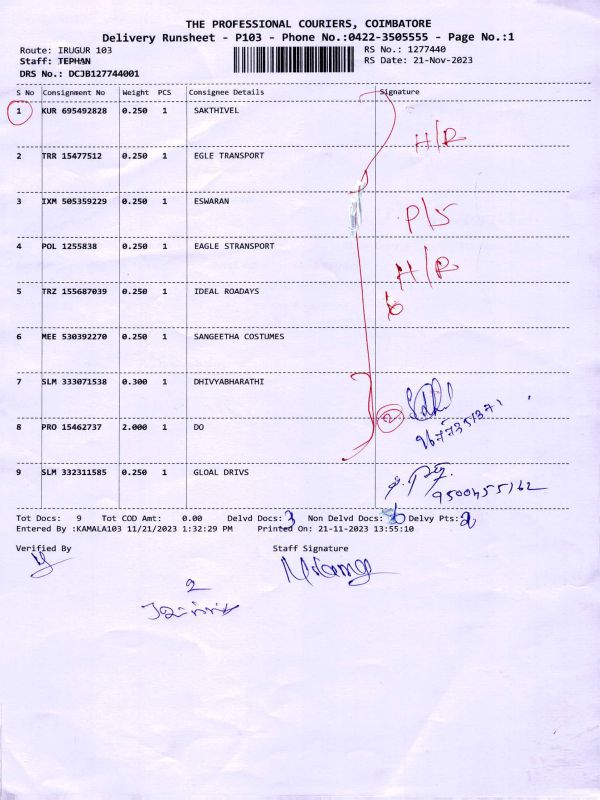 THE PROFESSIONAL COURIERS, COIMBATORE
Delivery Runsheet - P103 - Phone No.:0422-3505555 - Page No.:1
Route: IRUGUR 103 RS No.: 1277440
Staff: TEPHAN RS Date: 21-Nov-2023
DRS No.: DCJB127744001
S No Consignment No Weight PCS Consignee Details Signature
1 KUR 695492828 0.250 1 SAKTHIVEL H/R
2 TRR 15477512 0.250 1 EGLE TRANSPORT
3 IXM 505359229 0.250 1 ESWARAN P/S
4 POL 1255838 0.250 1 EAGLE STRANSPORT H/R
5 TRZ 155687039 0.250 1 IDEAL ROADAYS
6 MEE 530392270 0.250 1 SANGEETHA COSTUMES
7 SLM 333071538 0.300 1 DHIVYABHARATHI
8 PRO 15462737 2.000 1 DO 2
9 SLM 332311585 0.250 1 GLOAL DRIVS 9500455162
Tot Docs: 9 Tot COD Amt: 0.00 Delvd Docs: 3 Non Delvd Docs: 6 Delvy Pts: 2
Entered By :KAMALA103 11/21/2023 1:32:29 PM Printed On: 21-11-2023 13:55:10
Verified By Staff Signature
2